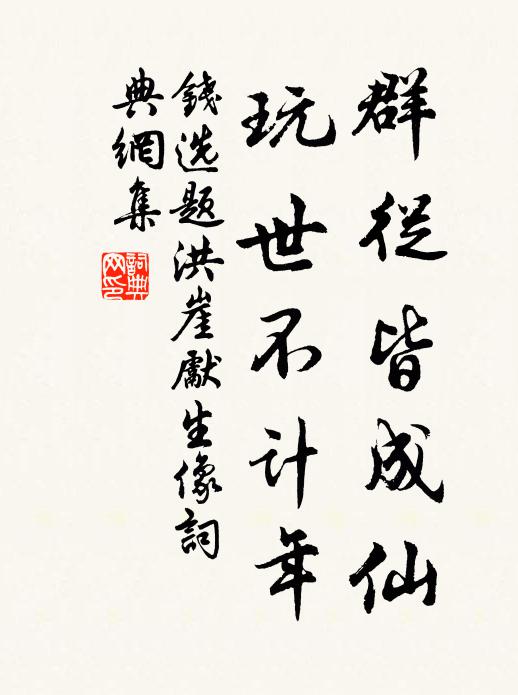 群從皆成仙
玩世不计年
錢选题洪崖獻生像詞
典網集
詞典
网印